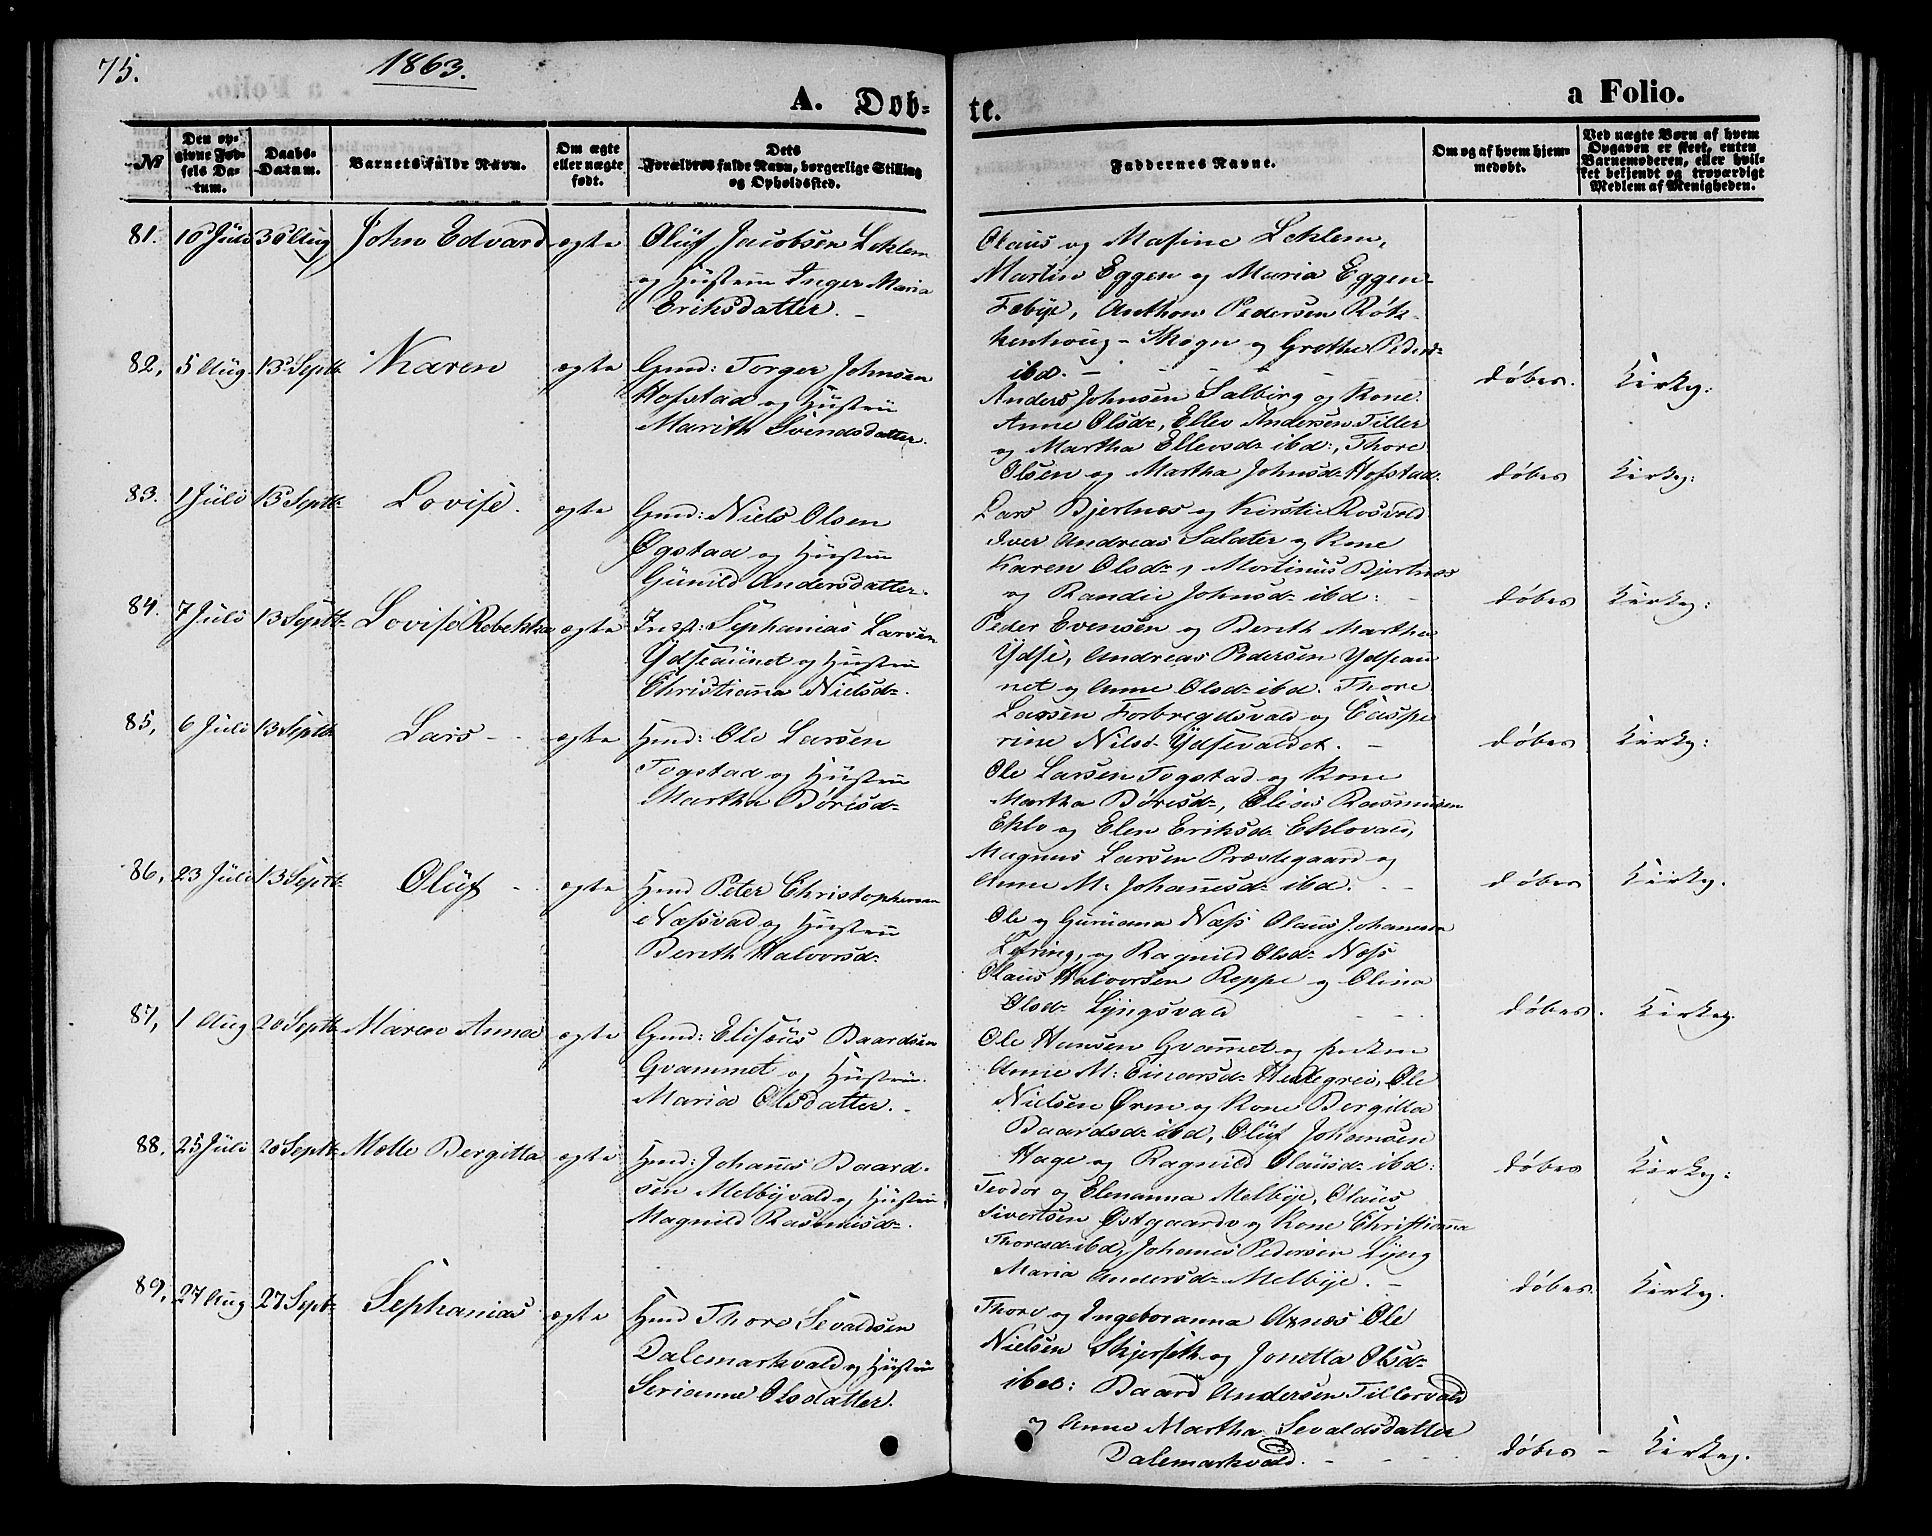 75.
1863.
A. Døb-
te.
a Folio.
No
Den op-
givne Fød-
sels Da-
tum.
Daabs-
Datum.
Barnets fulde Navn.
Om ægte
eller uægte
født.
Dets
Forældres fulde Navn, borgerlige Stilling
og Opholdssted.
Faddernes Navne.
Om og af hvem hjem-
medøbt.
Ved uægte Børn af hvem
Opgaven er skeet, enten
Barnemoderen, eller hvil-
ket bekjendt og troværdigt
Medlem af Menigheden.
81. 10 Juli 30 Aug John Edvard ægte Oluf Jacobsen Leklem
og Hustru Inger Maria
Eriksdatter.
Olaus og Masine Leklem,
Martin Eggen og Maria Eggen
Febye, Anthon Pedersen
Skogn og Grethe Pedersd
ibd. døbes. Kirkeg:
82, 5 Aug 13 Septb Karen ægte Gmd: Torger Johnsen
Hofstad og Hustru
Marith Svendsdatter.
Anders Johnsen Salberg og Kone
Anne Olsd, Ellev Andersen Tiller
og Martha Ellevsd ibd:, Thore
Olsen og Martha Johnsd Hofstad. døbes Kirkeg:
83. 1 Juli 13 Septb Lovise. ægte Gmd: Niels Olsen
Øgstad og Hustru
Gunild Andersdatter.
Lars Bjertnæs og Kirstie Rosvold
Iver Andreas Salater og Kone
Karen Olsd, Mortinus Bjertnæs
og Randie Johnsd ibd: døbes Kirkeg:
84. 7 Juli 13 Septb Lovise Rebekka ægte Inst: Sephanias Larsen
Ydseaunet og Hustru
Christianna Nielsd.
Peder Evensen og Bereth Martha
Ydse, Andreas Pedersen Ydseau
net og Anne Olsd ibd. Thore
Larsen Forbregdsvald og Caspe
rine Nilsd Ydsevaldet. døbes Kirkeg:
85, 6 Juli 13 Septb Lars ægte Hmd: Ole Larsen
Togstad og Hustru
Martha Børisd
Ole Larsen Togstad og Kone
Martha Børisd, Elias Rasmusen
Eklo og Elen Eriksd Eklovald,
Magnus Larsen Præstegaard og
Anne M. Johanesd ibd. døbes Kirkeg.
86, 23 Juli 13 Septb Oluf ægte Hmd Peter Christophersen
Næssvald og Hustru
Bereth Halvorsd
Ole og Guruanna Næss Olaus Johannesen
Lefring, og Ragnild Olsd Næss
Olaus Halvorsen Reppe og Olina
Olsd Lyngsvald døbes. Kirkeg.
87, 1 Aug 20 Septb Maren Anna ægte Gmd: Elisæus Baardsen
Qvammet og Hustru.
Maria Olsdatter.
Ole Hansen Qvammet og
Anne M. Einarsd Hellegrei, Ole
Nielsen Øren og Kone Bergitta
Baardsd ibd, Oluf Johansen
Hage og Ragnild Olausd ibd: døbes Kirkeg:
88. 25 Juli 20 Septb Mette Bergitta ægte Hmd: Johanes Baard-
sen Melbyvald og Hustru,
Magnild Rasmusd.
Teodor og Elenanna Melbye, Olaus
Sivertsen Østgaard og Kone Christianna
Thoresd ibd, Johanes Pedersen Lyng
Maria Andersd Melbye. døbes. Kirkeg.
89, 27 Aug 27 Septb Sephanias ægte Hmd Thore Sevaldsen
Dalemarkvald og Hustru
Serianne Olsdatter.
Thore og Ingeboranna Axnæs Ole
Nielsen Skjerseth og Jonetta Olsd
ibd: Baard Andersen Tillervald
og Anne Martha Sevaldsdatter
Dalemarkvald. døbes Kirkeg.